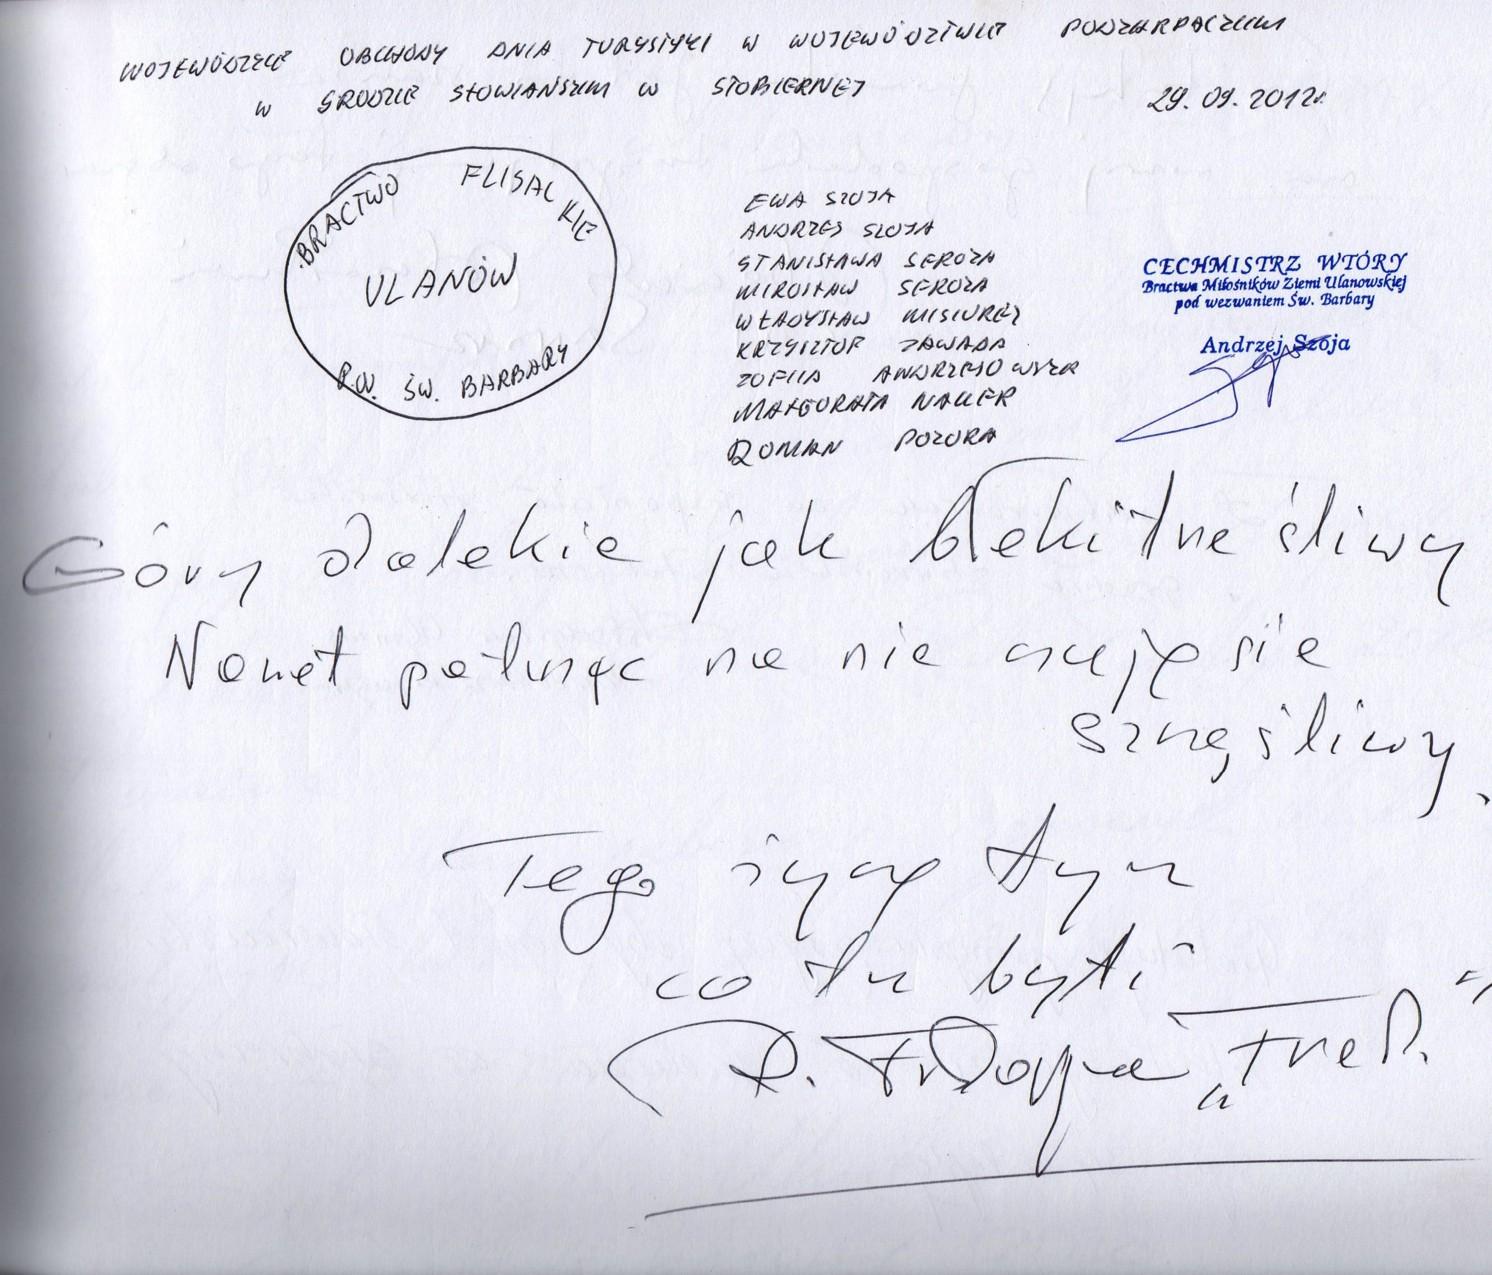 WOJEWÓDZKIE OBCHODY DNIA TURYSTYKI W WOJEWÓDZTWIE PODKARPACKIM
W GRODZIE SŁOWIAŃSKIM W STOBIERNEJ
29.09.2012r.
BRACTWO FLISACKIE
ULANÓW
P.W. ŚW. BARBARY
EWA SZOJA
ANDRZEJ SZOJA
STANISŁAWA SEROKA
MIROSŁAW SEROKA
WŁADYSŁAW MISIUREJ
KRZYSZTOF ZAWADA
ZOFIIA
MAŁGORATA NALLER
ROMAN POZORA
CECHMISTRZ WTÓRY
Bractwa Miłośników Ziemi Ulanowskiej
pod wezwaniem Św. Barbary
Andrzej Szoja
Góry dalekie jak błekitne śliwy
Nawet patrząc na nie czuję sie
szczęśliwy.
Tego życzę tym
co tu byli
„Fred"